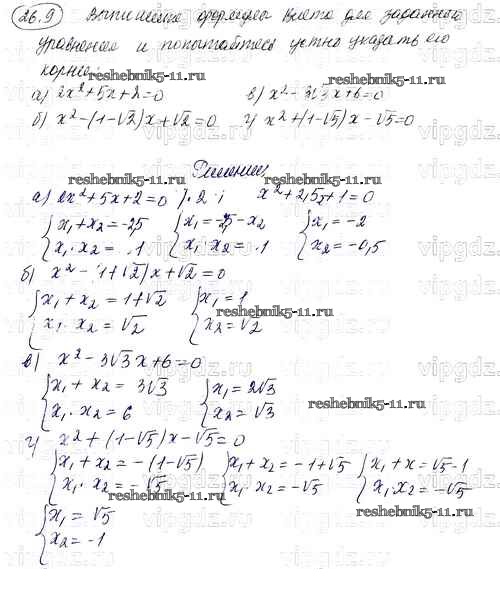 26.9 Выпишите формулы Виета для заданного
уравнения и попытайтесь устно указать его
корни:
reshebnik5-11.ru
а) 2x²+5x+2=0 в) x²-3√3x+6=0
б) x²-(1-√2)x+√2=0 г) x²+(1-√5)x-√5=0
reshebnik5-11.ru
Решение,
reshebnik5-11.ru
а) 2x²+5x+2=0 ): 2; x²+2,5x+1=0
{x₁+x₂=-2,5 {x₁=-2,5-x₂ {x₁=-2
{x₁·x₂=1 {x₁·x₂=1 {x₂=-0,5
б) x²-(1+√2)x+√2=0
{x₁+x₂=1+√2 {x₁=1
{x₁·x₂=√2 {x₂=√2
reshebnik5-11.ru
в) x²-3√3x+6=0
{x₁+x₂=3√3 {x₁=2√3
{x₁·x₂=6 {x₂=√3
reshebnik5-11.ru
г) x²+(1-√5)x-√5=0
{x₁+x₂=-(1-√5) {x₁+x₂=-1+√5 {x₁+x=√5-1
{x₁·x₂=-√5 {x₁·x₂=-√5 {x₁·x₂=-√5
reshebnik5-11.ru
reshebnik5-11.ru
{x₁=√5
{x₂=-1